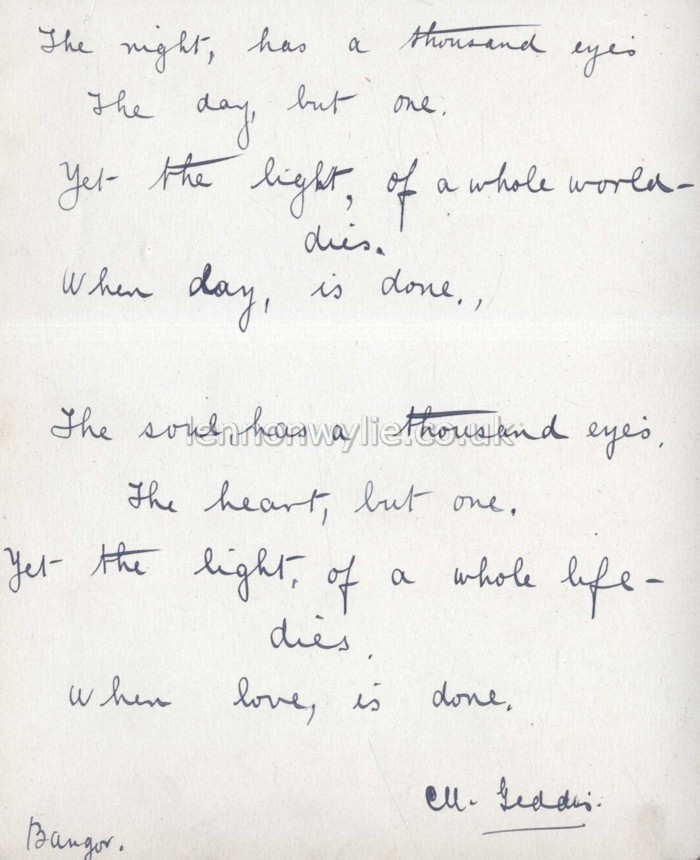 The night, has a thousand eyes
The day, but one.
Yet the light, of a whole world-
dies.
When day, is done.,
lennonwylie.co.uk
The soul, has a thousand eyes.
The heart, but one.
Yet the light, of a whole life-
dies.
When love, is done.
M. Geddis.
Bangor.